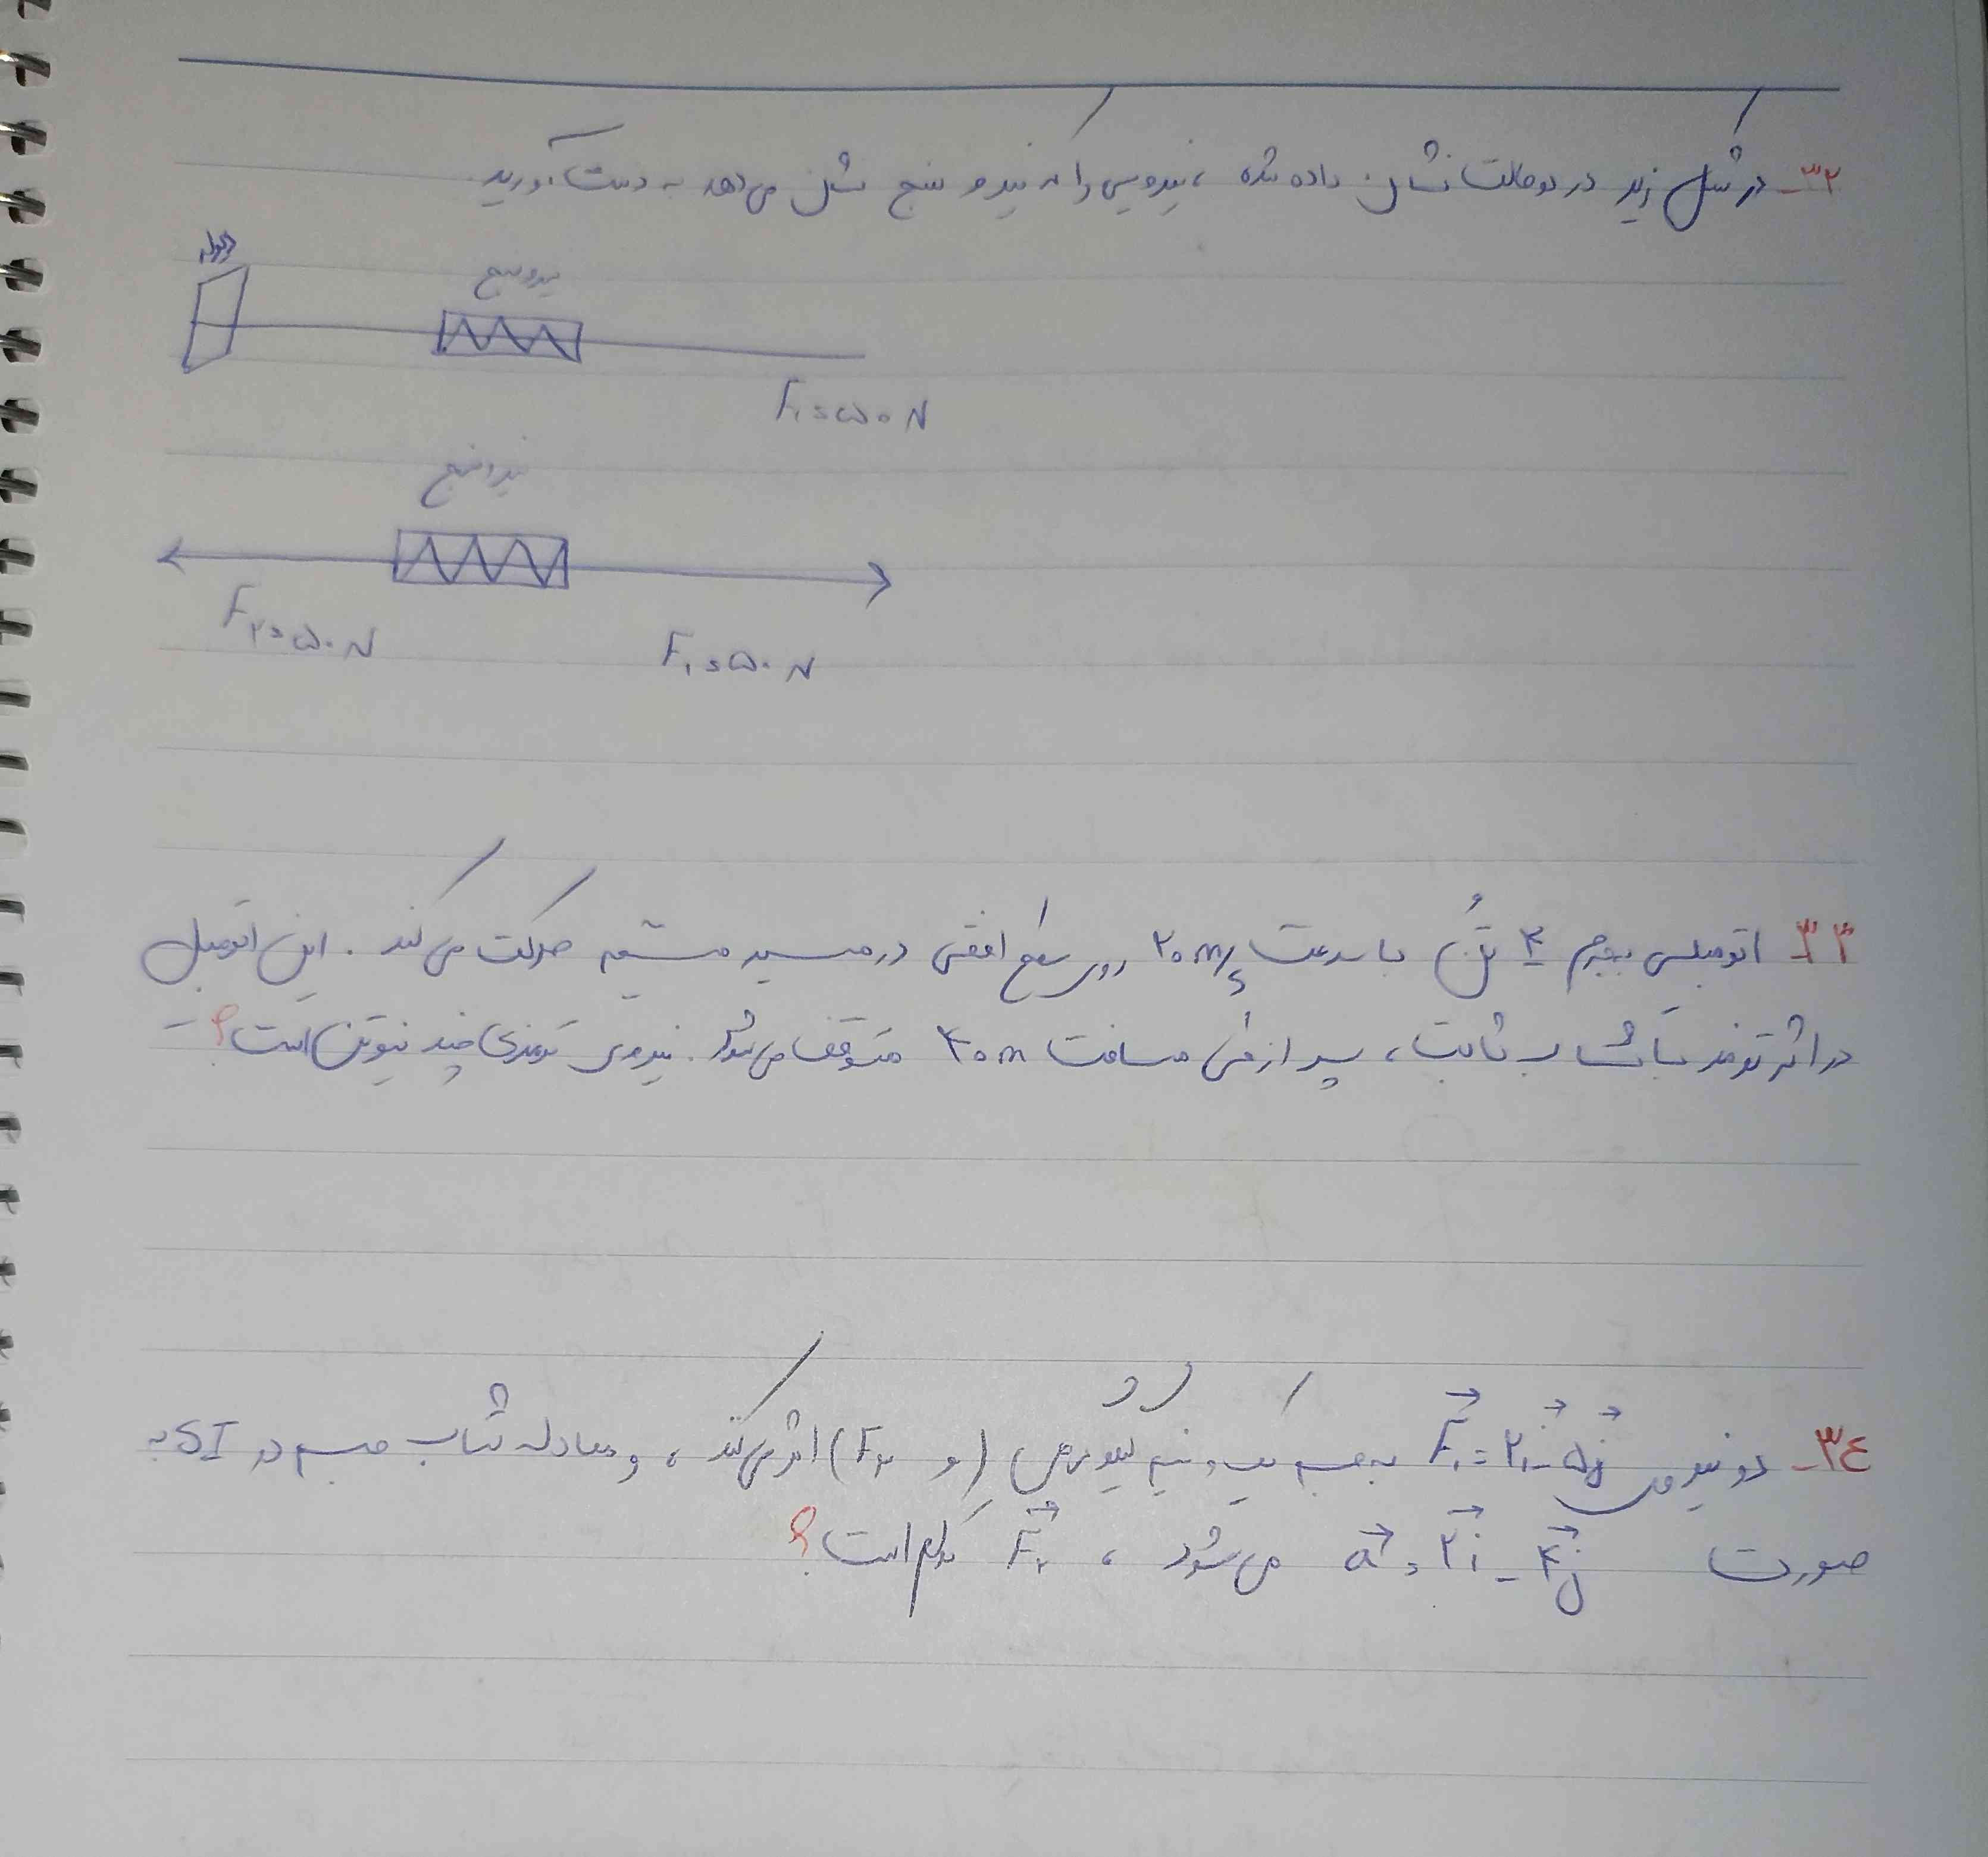 ۳۲- در شکل زیر در دو حالت نشان داده شده ، نیرویی را که نیرو سنج نشان می‌دهد به دست آورید.
دیوار
نیروسنج
F₁ = ۵۰ N
نیروسنج
F₂ = ۵۰ N
F₁ = ۵۰ N
۳۳- اتومبیلی بجرم ۴ تُن با سرعت ۲۰ m/s روی سطح افقی در مسیر مستقیم حرکت می کند . این اتومبیل
در اثر ترمز با شتاب ثابت ، پس از طی مسافت ۴۰ m متوقف می‌شود . نیروی ترمزی چند نیوتن است ؟
۳۴- دو نیروی F₁ = ۲i - ۵j به جسم یک و نیم کیلوگرمی ( و F₂ ) اثر می کند ، و معادله شتاب جسم در SI به
صورت a = ۲i - ۴j می‌شود ، F₂ کدام است ؟